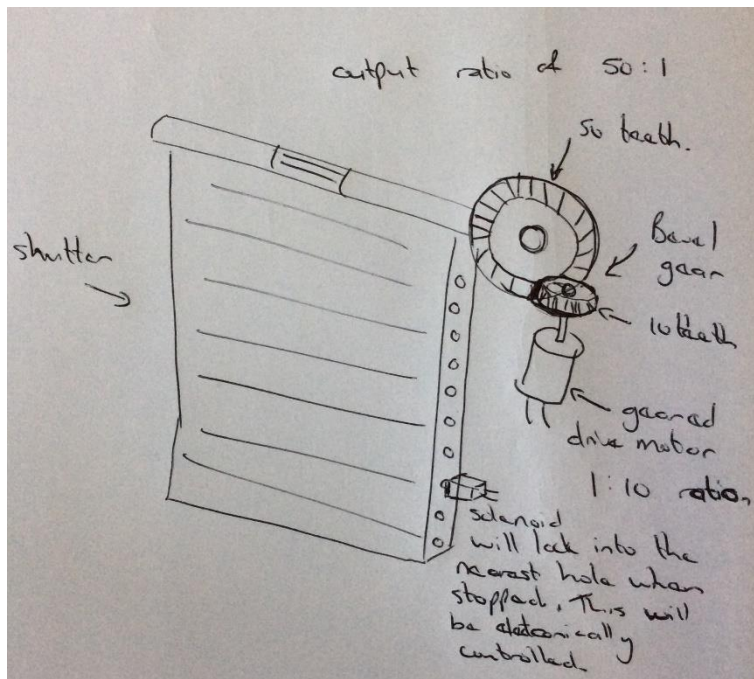 output ratio of 50:1
50 teeth.
Bevel
gear
shutter
10 teeth
geared
drive motor
1:10 ratio.
solenoid
will lock into the
nearest hole when
stopped. This will
be eletronically
controlled.